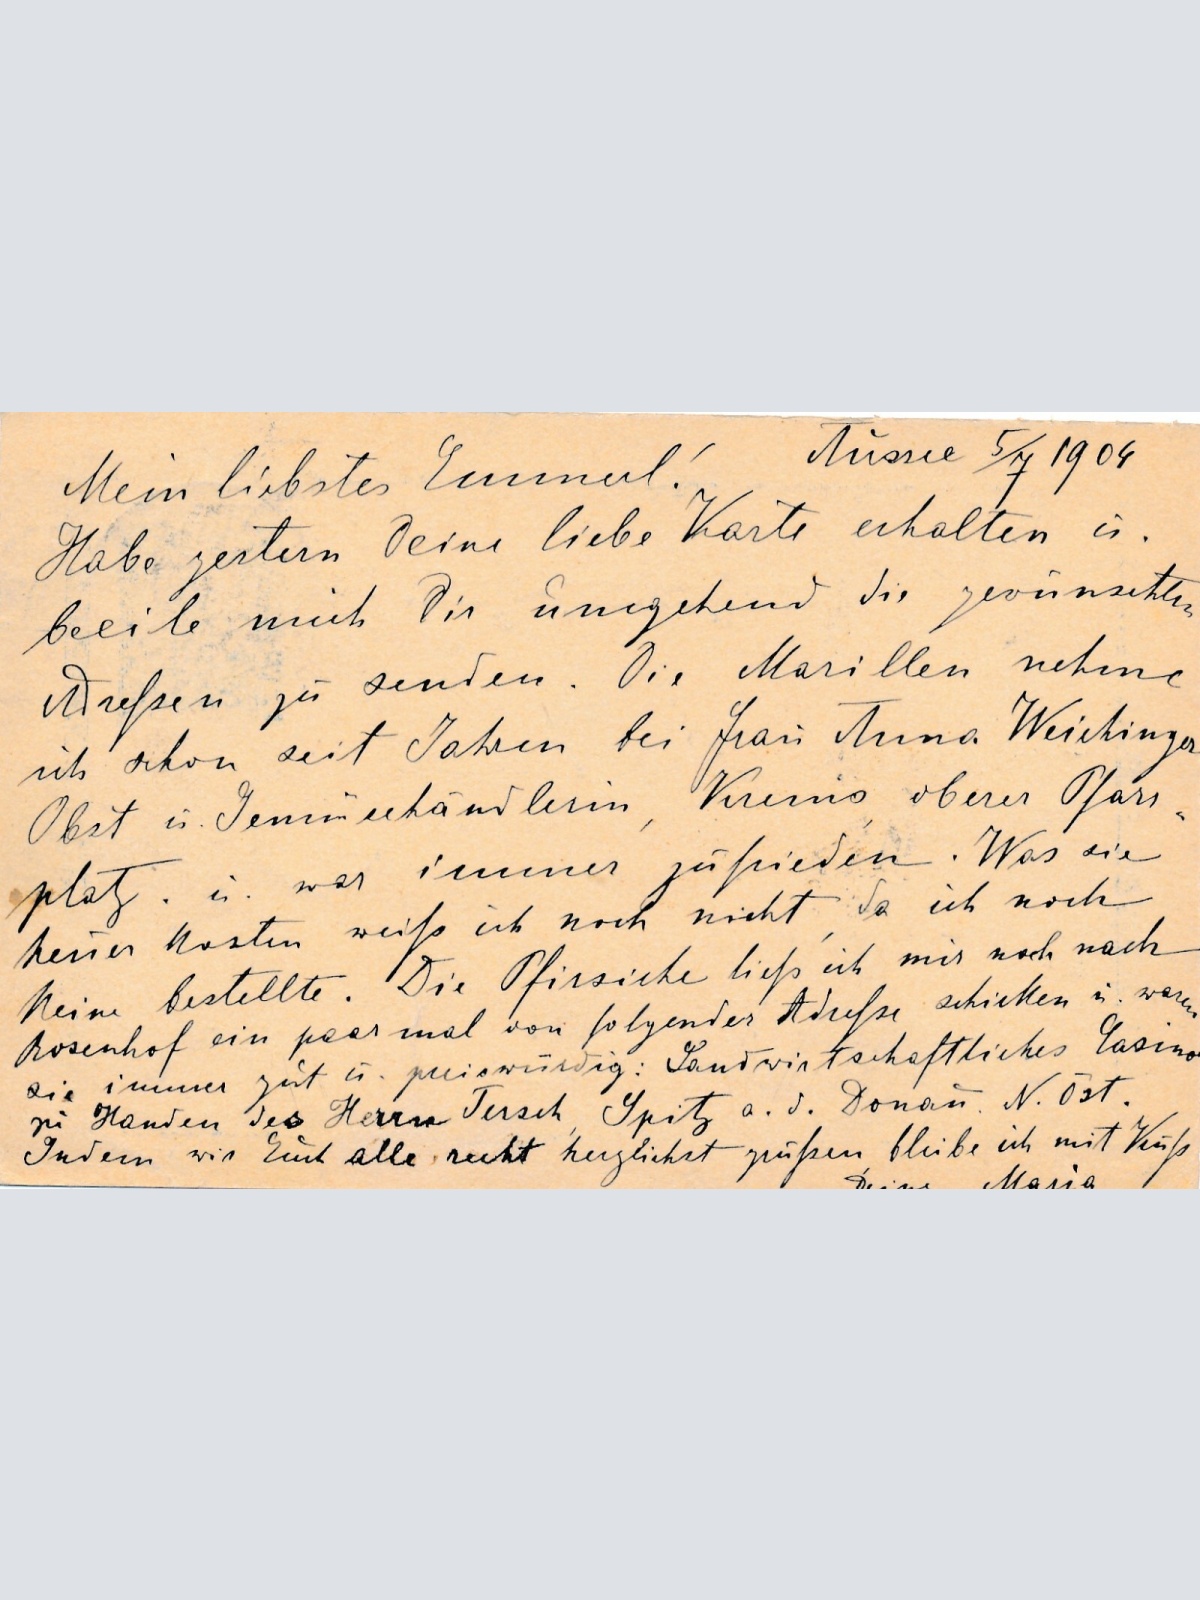 Aussee 5/7 1904
Mein liebstes Emmerl!
Habe gestern Deine liebe Karte erhalten u.
beeile mich Dir umgehend die gewünschten
Adreßen zu senden. Die Marillen nehme
ich schon seit Jahren bei Frau Anna Weichinger
Obst u. Gemüsehändlerin, Krems, oberer Pfarr-
platz. u. war immer zufrieden. Was sie
heuer kosten weiß ich noch nicht, da ich noch
keine bestellte. Die Pfirsiche ließ ich mir noch nach
Rosenhof ein paar mal von folgender Adreße schicken u. waren
sie immer gut u. preiswürdig: Landwirtschaftliches Casino
zu Handen des Herrn Tersch, Spitz a. d. Donau. N. Öst.
Indem wir Euch alle recht herzlichst grüßen bleibe ich mit Kuß
Deine Maria